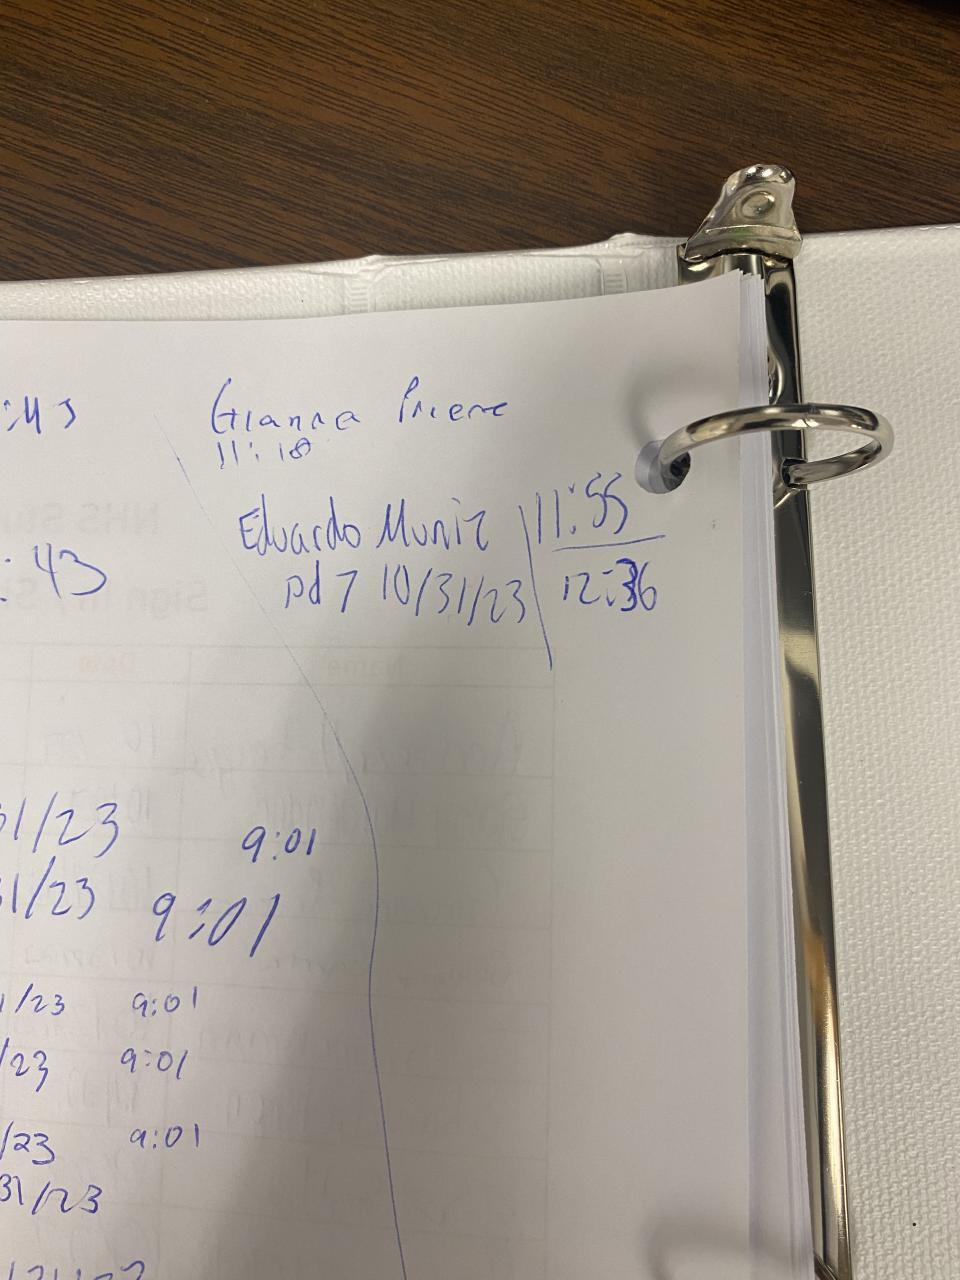 :43
Gianna
11:18
Eduardo Muniz
11:55
:43
pd 7 10/31/23
12:36
31/23
9:01
31/23 9:01
1/23 9:01
/23 9:01
/23 9:01
31/23
NHS
Name